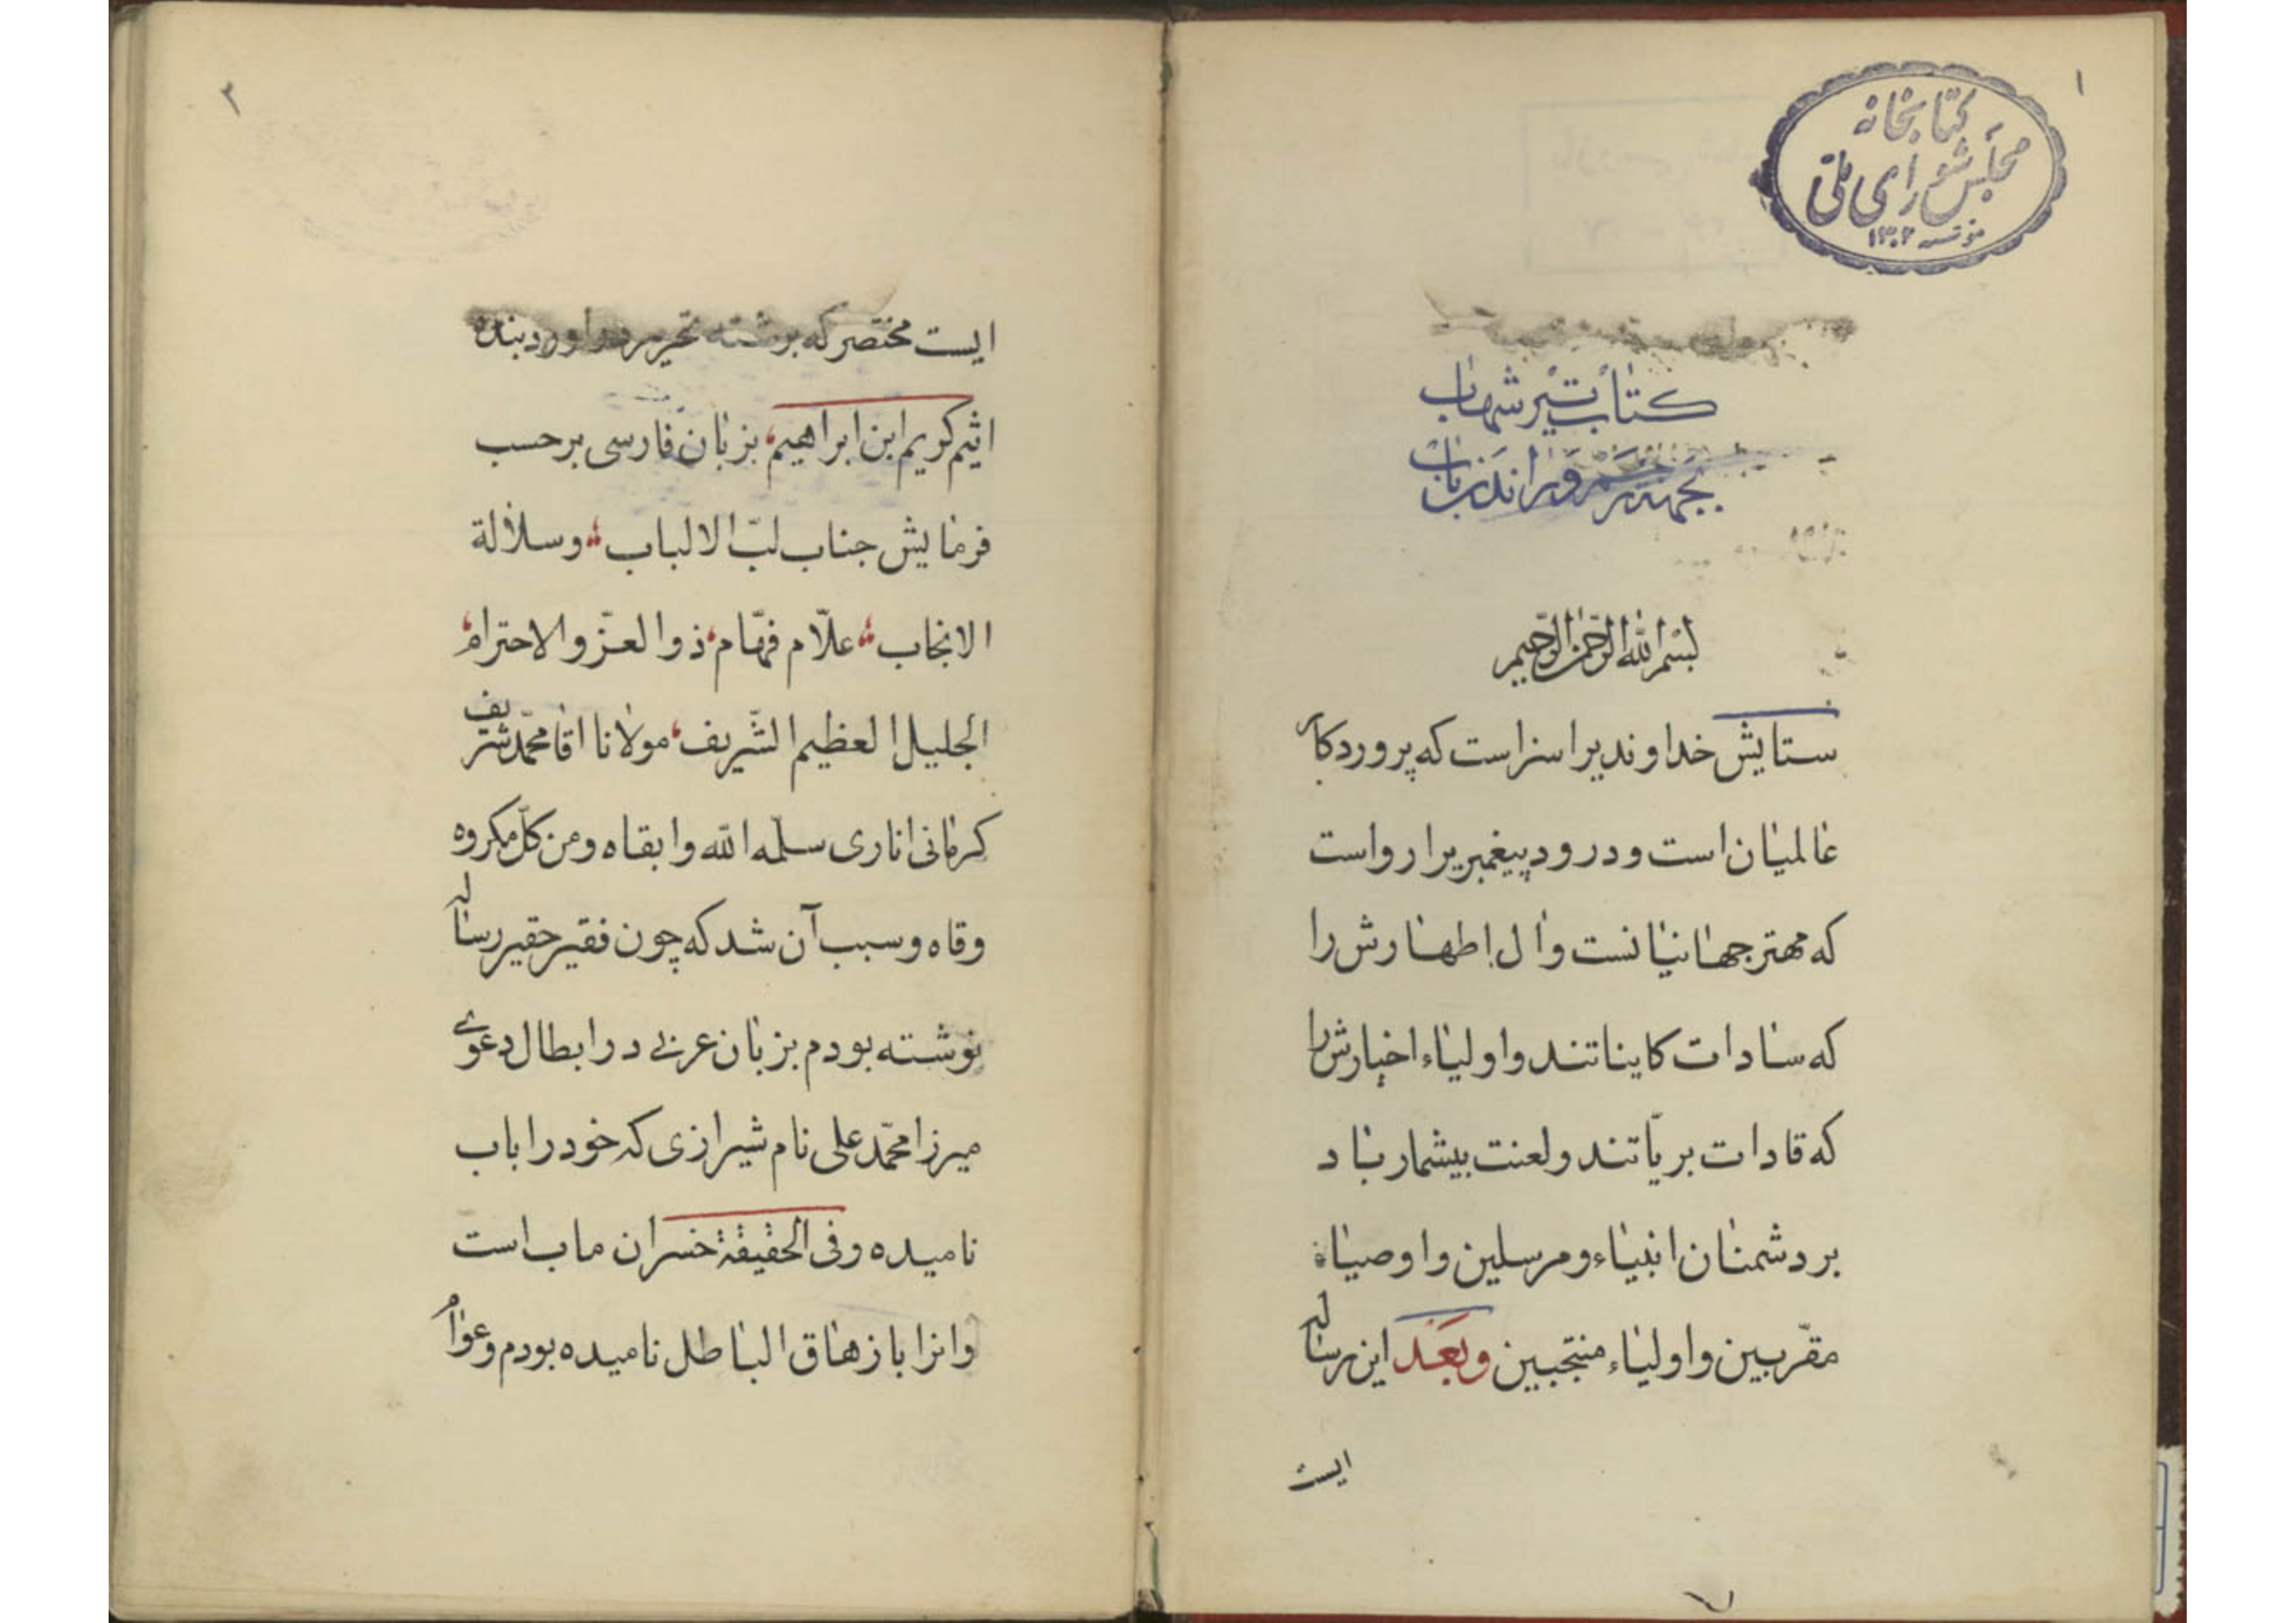 ۱
کتابخانه
مجلس شورای ملی
مؤسسه ۱۳۰۲
کتاب تیر شهاب
بسم الله الرحمن الرحیم
ستایش خداوندیرا سزاست که پروردکار
عالمیان است و درود پیغمبریرا رواست
که مهتر جهانیانست وآل اطهارش را
که سادات کایناتند و اولیاء اخیارش را
که قادات بریّاتند و لعنت بیشمار باد
بر دشمنان انبیاء و مرسلین و اوصیاء
مقرّبین و اولیاء منتجبین وبَعَد این رساله
ایست
۲
ایست مختصر که برشته تحریر در اورد بنده
اثیم کریم ابن ابراهیم، بزبان فارسی برحسب
فرمایش جناب لبّ الالباب، وسلالة
الانجاب، علّام فهّام، ذوالعزّ والاحترام،
الجلیل العظیم الشّریف، مولانا اقا محمّد شریف
کرمانی اناری سلّمه الله وابقاه ومن کلّ مکروه
وقاه وسبب آن شد که چون فقیر حقیر رساله
نوشته بودم بزبان عربی در ابطال دعوی
میرزا محمّد علی نام شیرازی که خود را باب
نامیده وفی الحقیقة خسران ماب است
وانرا بازهاق الباطل نامیده بودم وعوام